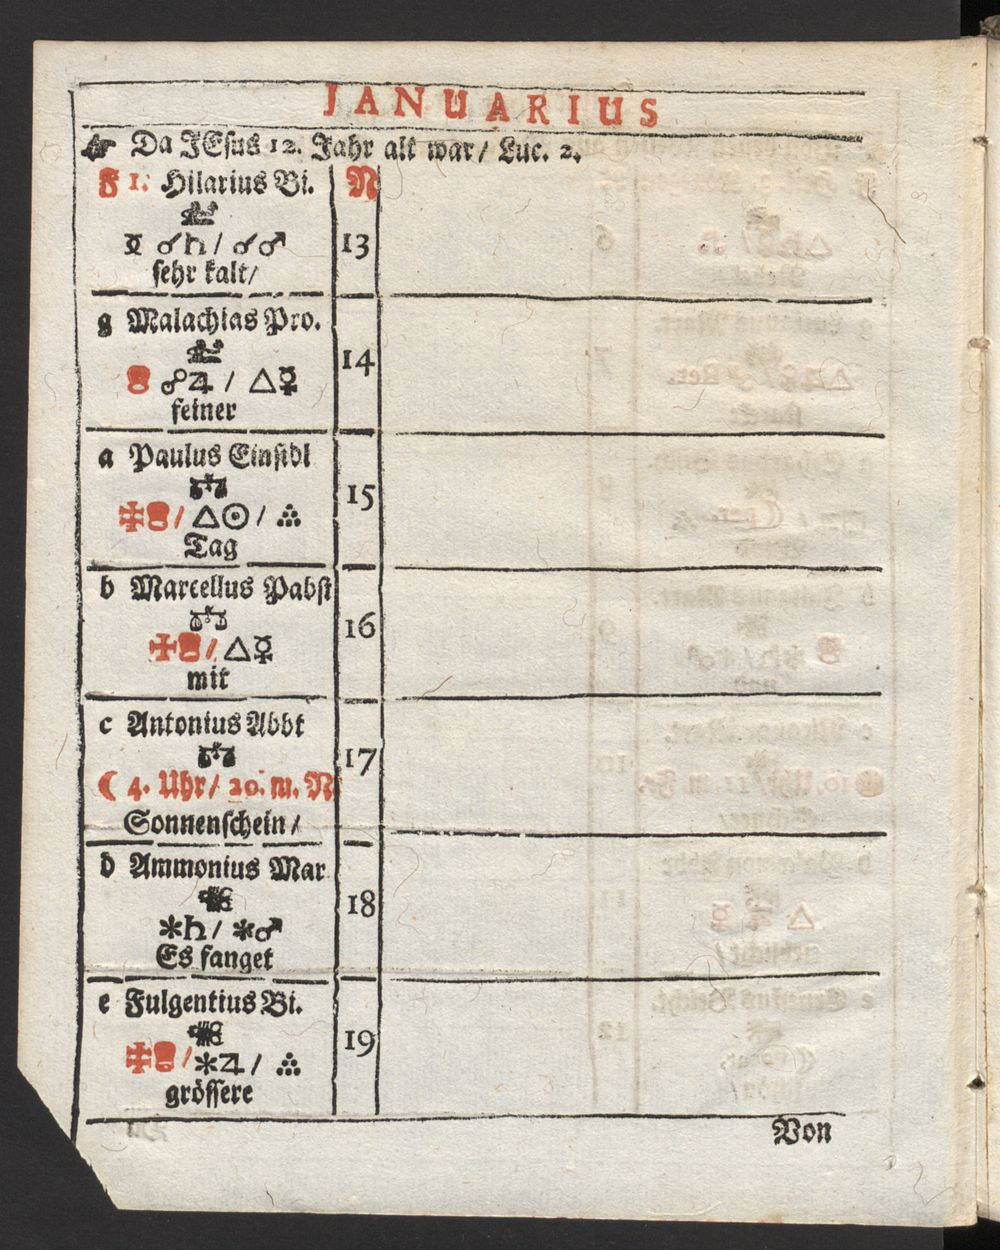 JANUARIUS
☞ Da JEsus 12. Jahr alt war/ Luc. 2.
F 1. Hilarius Bi. N
☿ ☌♄/ ☌♂ 13
sehr kalt/
g Malachias Pro.
☍♃ / △☿ 14
feiner
a Paulus Einsidl
/ △☉ / ∴ 15
Tag
b Marcellus Pabst
/ △☿ 16
mit
c Antonius Abbt
17
☾ 4. Uhr/ 20. m. N
Sonnenschein /
d Ammonius Mar
18
✱♄/ ✱♂
Es fanget
e Fulgentius Bi.
19
/ ✱♃ / ∴
grössere
Von